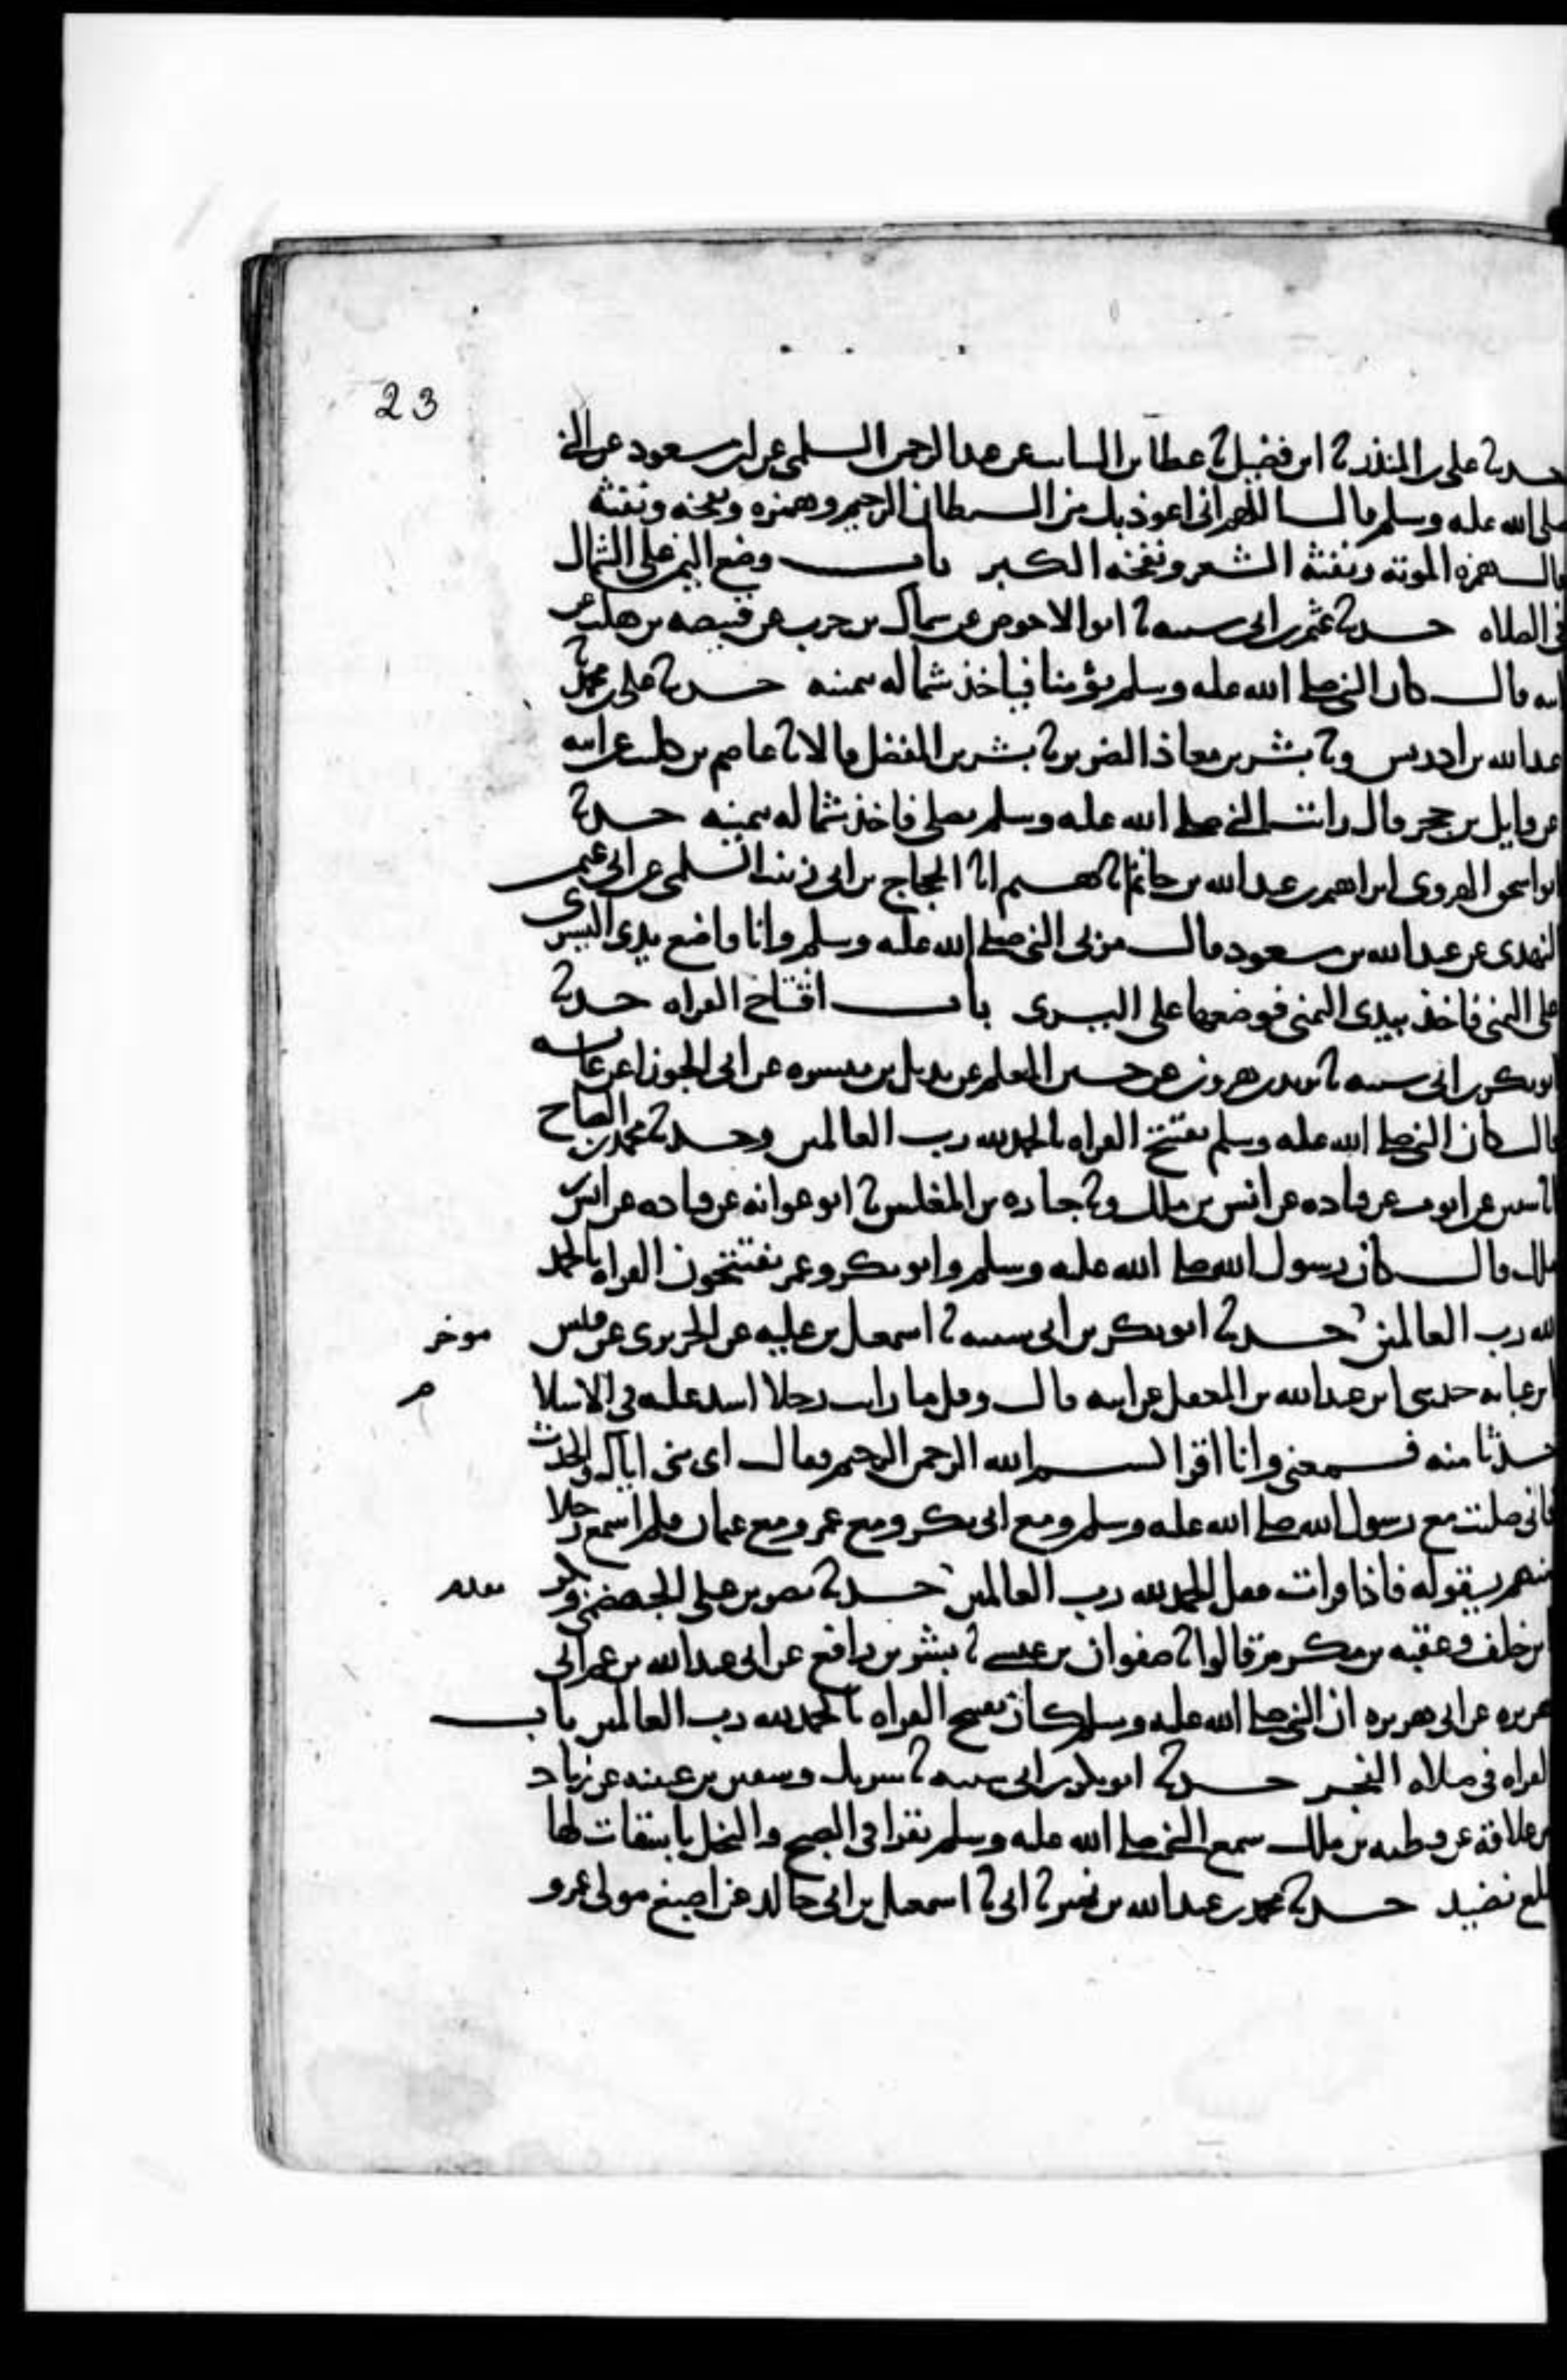 23
حدثنا على بن المنذر نا ابن فضيل نا عطا بن السائب عن عبد الرحمن السلمى عن ابن مسعود عن النبى
صلى الله عليه وسلم قال اللهم انى اعوذ بك من الشيطان الرجيم وهمزه ونفخه ونفثه
قال همزه الموته ونفثه الشعر ونفخه الكبر باب وضع اليمين على الشمال
فى الصلاه حدثنا عثمن بن ابى شيبه نا ابو الاحوص عن سماك بن حرب عن قبيصه بن هلب عن
ابيه قال كان النبى صلى الله عليه وسلم يؤمنا فياخذ شماله بيمينه حدثنا على بن محمد نا
عبد الله بن ادريس ونا بشر بن معاذ الضرير نا بشر بن المفضل قالا نا عاصم بن كليب عن ابيه
عن وايل بن حجر قال رايت النبى صلى الله عليه وسلم يصلى فاخذ شماله بيمينه حدثنا
ابو اسحق الهروى ابراهيم بن عبد الله بن حاتم انا هشيم انا الحجاج بن ابى زينب السلمى عن ابى عثمن
النهدى عن عبد الله بن مسعود قال مر بى النبى صلى الله عليه وسلم وانا واضع يدى اليسرى
على اليمنى فاخذ بيدى اليمنى فوضعها على اليسرى باب افتتاح القراه حدثنا
ابو بكر بن ابى شيبه نا يزيد بن هرون عن حسين المعلم عن بديل بن ميسره عن ابى الجوزا عن عائشه
قالت كان النبى صلى الله عليه وسلم يفتتح القراه بالحمد لله رب العالمين وحدثنا محمد بن الصباح
انا سفين عن ايوب عن قتاده عن انس بن ملك ونا جباره بن المغلس نا ابو عوانه عن قتاده عن انس بن
ملك قال كان رسول الله صلى الله عليه وسلم وابو بكر وعمر يفتتحون القراه بالحمد
لله رب العالمين حدثنا ابو بكر بن ابى شيبه نا اسمعيل بن عليه عن الجريرى عن قيس موخر
ابن عبايه حدثنى ابن عبد الله بن المغفل عن ابيه قال وقل ما رايت رجلا اشد عليه فى الاسلام
حدثا منه فسمعنى وانا اقرا بسم الله الرحمن الرحيم فقال اى بنى اياك والحدث
فانى صليت مع رسول الله صلى الله عليه وسلم ومع ابى بكر ومع عمر ومع عثمان فلم اسمع رجلا
منهم يقوله فاذا قرات فقل الحمد لله رب العالمين حدثنا نصر بن على الجهضمى وبكر مقدم
بن خلف وعقبه بن مكرم قالوا نا صفوان بن عيسى نا بشر بن رافع عن ابى عبد الله بن عم ابى
هريره عن ابى هريره ان النبى صلى الله عليه وسلم كان يفتتح القراه بالحمد لله رب العالمين باب
القراه فى صلاه الفجر حدثنا ابو بكر بن ابى شيبه نا شريك وسفين بن عيينه عن زياد
بن علاقة عن قطبه بن ملك سمع النبى صلى الله عليه وسلم يقرا فى الصبح والنخل باسقات لها
طلع نضيد حدثنا محمد بن عبد الله بن نمير نا ابى نا اسمعيل بن ابى خالد عن اصبغ مولى عمرو